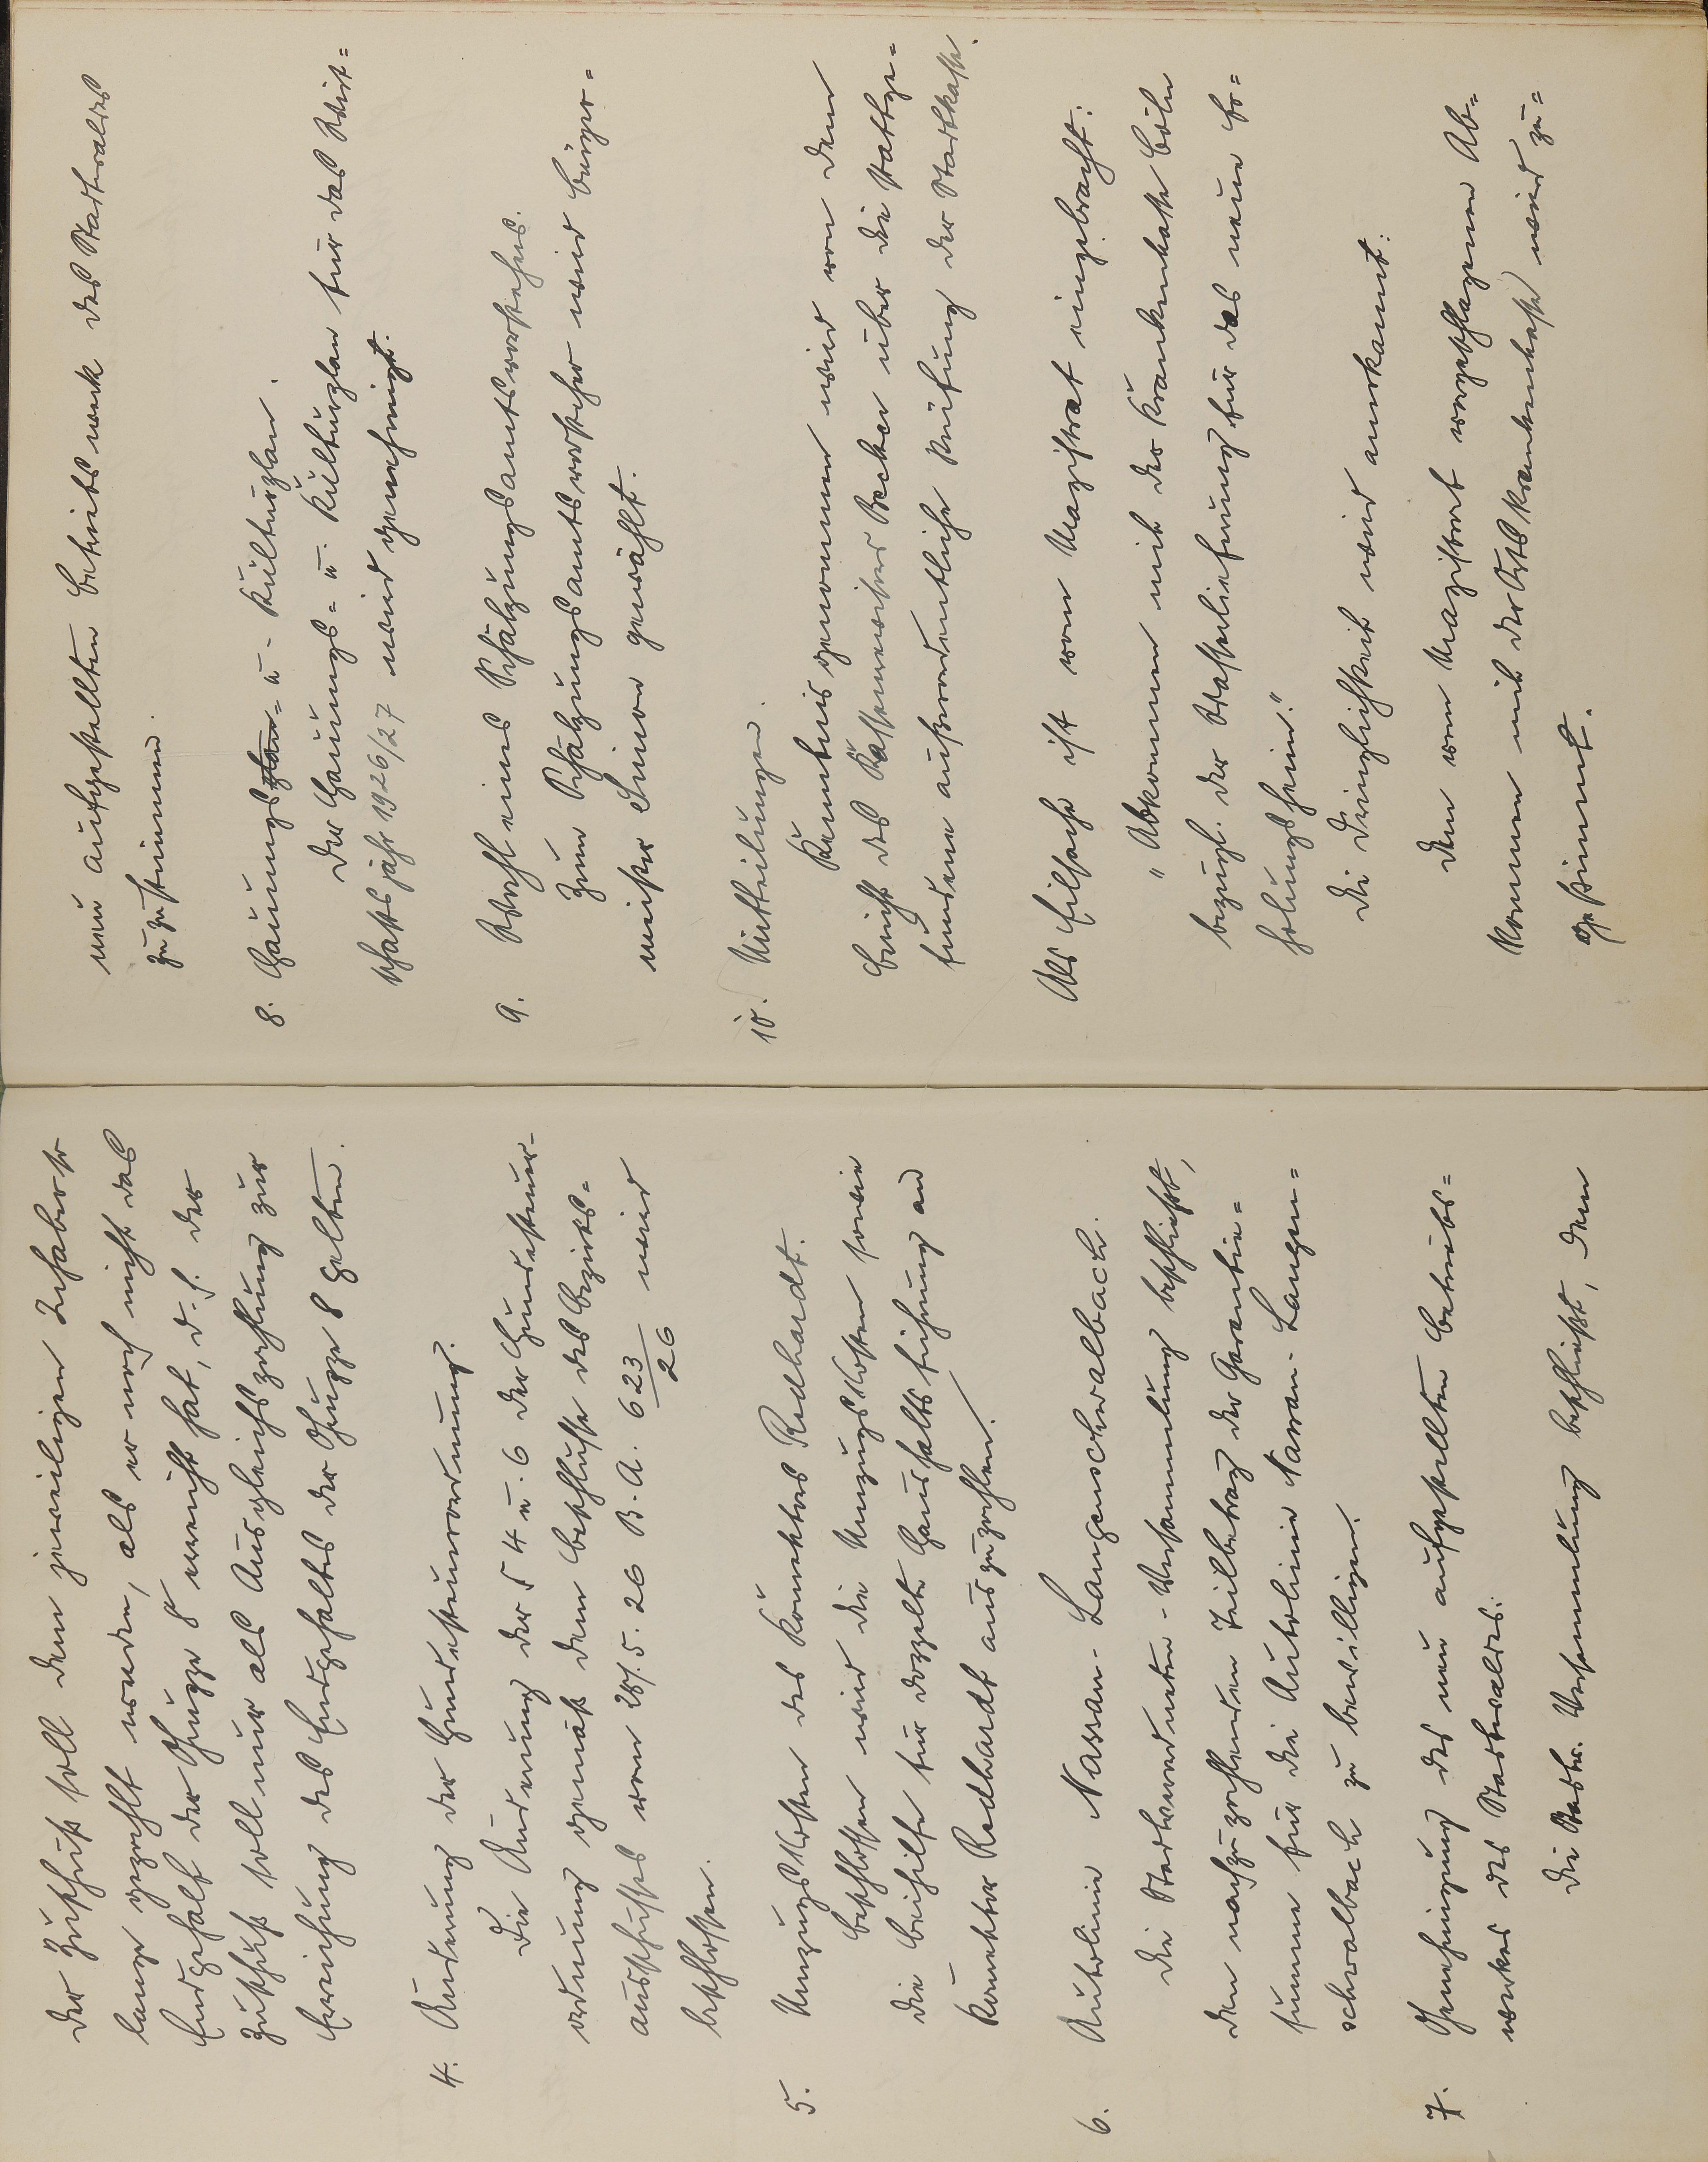 Der Zuschuß soll dem jeweiligen Inhaber so
lange gezahlt werden, als er noch nicht das
Endgehalt der Gruppe 8 erreicht hat, d. h. der
Zuschuß soll nur als Ausgleichszahlung zur
Erreichung des Endgehaltes der Gruppe 8 gelten.
4. Änderung der Hundesteuerordnung.
Die Änderung der § 4 u. 6 der Hundesteuer-
ordnung gemäß dem Beschlusse des Bezirks=
ausschusses vom 28./5. 26 B.A. 623/26 wird
beschlossen.
5. Umzugskosten des Konrektors Redhardt.
Beschlossen wird die Umzugskosten sowie
die Beihilfe für doppelte Haushaltsführung an
Konrektor Redhardt auszuzahlen.
6. Autolinie Nassau-Langenschwalbach.
Die Stadtverordneten-Versammlung beschließt,
den nachzuzahlenden Teilbetrag der Garantie=
summe für die Autolinie Nassau-Langen=
schwalbach zu bewilligen.
7. Genehmigung des neu aufgestellten Betriebs=
werkes des Stadtwaldes.
Die Stadtv. Versammlung beschließt, dem
neu aufgestellten Betriebswerk des Stadtwaldes
zuzustimmen.
8. Hauungsplan= u. Kulturplan.
Der Hauungs= u. Kulturplan für das Wirt=
schaftsjahr 1926/27 wird genehmigt.
9. Wahl eines Schätzungsamtsvorstehers.
Zum Schätzungsamtsvorsteher wird Bürger=
meister gewählt.
10. Mitteilungen.
Kenntnis genommen wird von dem
Bericht des Kassenverwalters Becker über die stattge=
fundene außerordentliche Prüfung der Stadtkasse.
Als Eilsache ist vom Magistrat eingebracht:
"Abkommen mit der Krankenkasse
bezügl. der Wasserlieferung für das neue Er=
holungsheim."
Die Dringlichkeit wird anerkannt.
Dem vom Magistrat vorgeschlagenen Ab=
kommen mit der Ortskrankenkasse wird zu=
gestimmt.